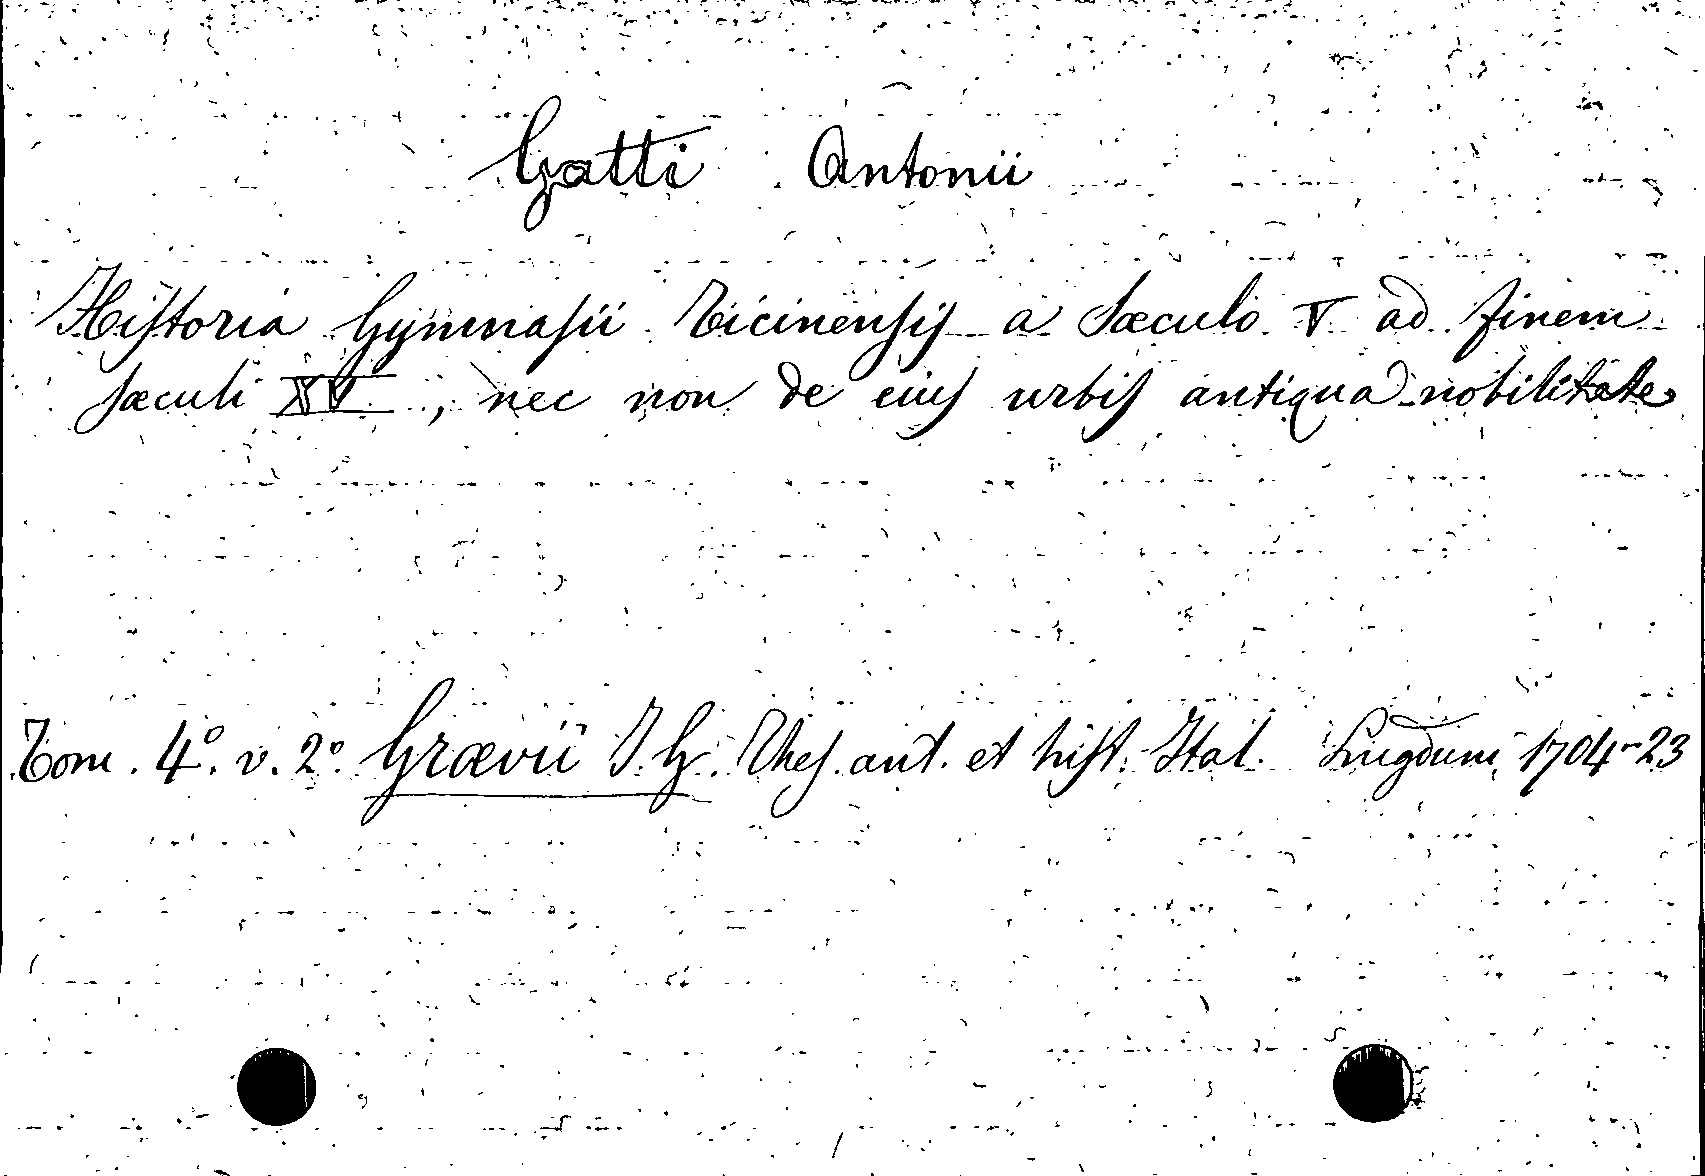 Gatti Antonii
Hiſtoria Gymnaſii Ticinenſis a Sæculo V ad finem
ſæculi XV, nec non de eius urbis antiqua nobilitate
Tom. 4º. v. 2º. Grævii J. G. Theſ. ant. et hiſt. Ital. Lugduni, 1704-23